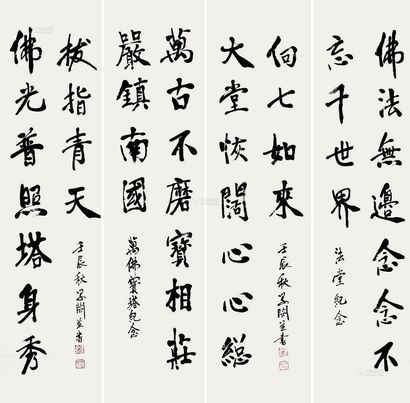 佛法無邊念念不
忘千世界
法堂紀念
大堂恢闊心心總
向七如來
壬辰秋並書
萬古不磨寶相莊
嚴鎮南國
萬佛寶塔紀念
佛光普照塔身秀
拔指青天
壬辰秋並書